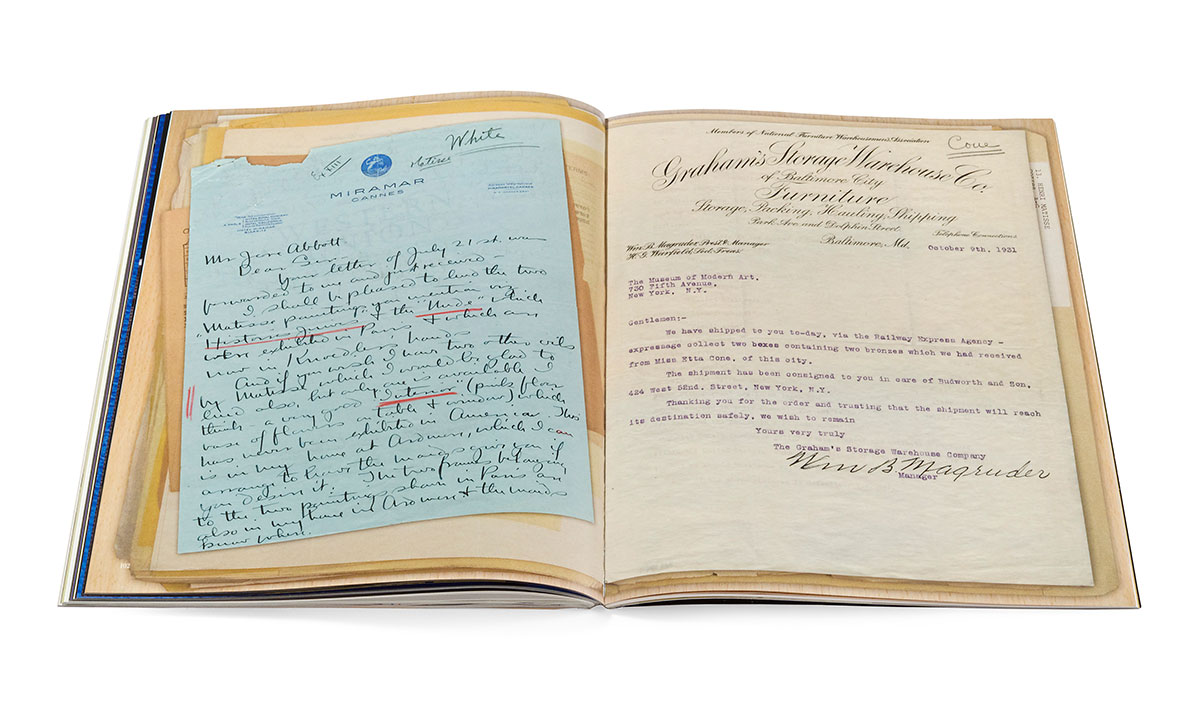 White
Matisse
MIRAMAR
CANNES
Mr Jere Abbott
Dear Sir:
Your letter of July 21st. was
forwarded to me and just received—
I shall be pleased to lend the two
Matisse paintings you mention viz
"Histoires Juives" & the "Nude" which
were exhibited in Paris & which are
now in Knoedlers hands
And if you wish I have two other oils
by Matisse which I would be glad to
lend also, but only one is available I
think a very good Interior (pink floor
vase of flowers on table & window) which
has never been exhibited in America. This
is in my home at Ardmore, which I can
arrange to have the maids give you if
you desire it. The two frames belonging
to the two paintings shown in Paris are
also in my home in Ardmore & the maids
know where.
102
Members of National Furniture Warehousemen's Association
Cone
Graham's Storage Warehouse Co.
of Baltimore City
Furniture
Storage, Packing, Hauling, Shipping
Park Ave. and Dolphin Street
Telephone Connections
Wm. B. Magruder, Prest. & Manager
H. G. Warfield, Sec. Treas.
Baltimore, Md.
October 9th, 1931
The Museum of Modern Art.
730 Fifth Avenue,
New York. N.Y.
Gentlemen:-
We have shipped to you to-day, via the Railway Express Agency -
expressage collect two boxes containing two bronzes which we had received
from Miss Etta Cone, of this city.
The shipment has been consigned to you in care of Budworth and Son,
424 West 52nd. Street, New York, N.Y.
Thanking you for the order and trusting that the shipment will reach
its destination safely, we wish to remain
Yours very truly
The Graham's Storage Warehouse Company
Wm B Magruder
Manager
13. HENRI MATISSE